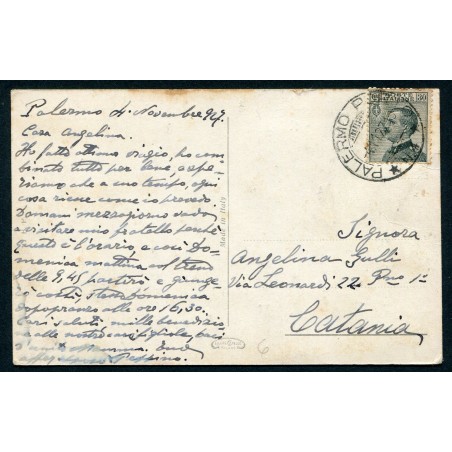 Palermo 4 Novembre 927.
Cara Angelina.
Ho fatto ottimo viaggio, ho com
binato tutto per bene, e spe
riamo che a suo tempo, ogni
cosa riesce come io prevedo.
Domani mezzogiorno vado
a visitare mio fratello perchè
questo è l'orario, e così Do-
menica mattina col treno
delle 9.45 partirò e giunge-
rò costì, stessa Domenica
dopopranzo alle ore 16,30.
Cari saluti mille benedizio
ni alle nostre care figliole, baci
Peppino.
Made in Italy
PALERMO
Signora
Angelina Gulli
Via Leonardi 22 Pmo 1º
Catania
6